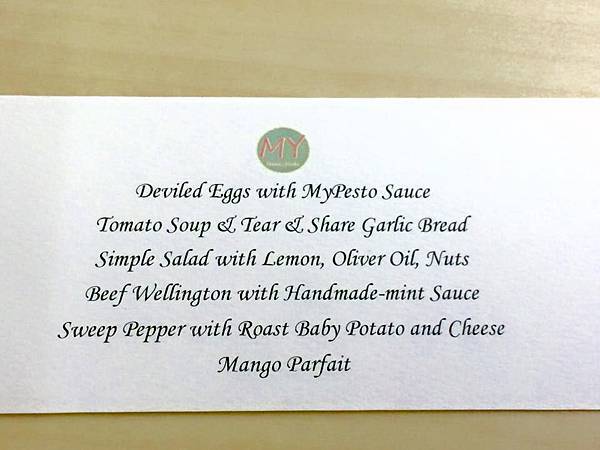 MY
Deviled Eggs with MyPesto Sauce
Tomato Soup & Tear & Share Garlic Bread
Simple Salad with Lemon, Oliver Oil, Nuts
Beef Wellington with Handmade-mint Sauce
Sweep Pepper with Roast Baby Potato and Cheese
Mango Parfait